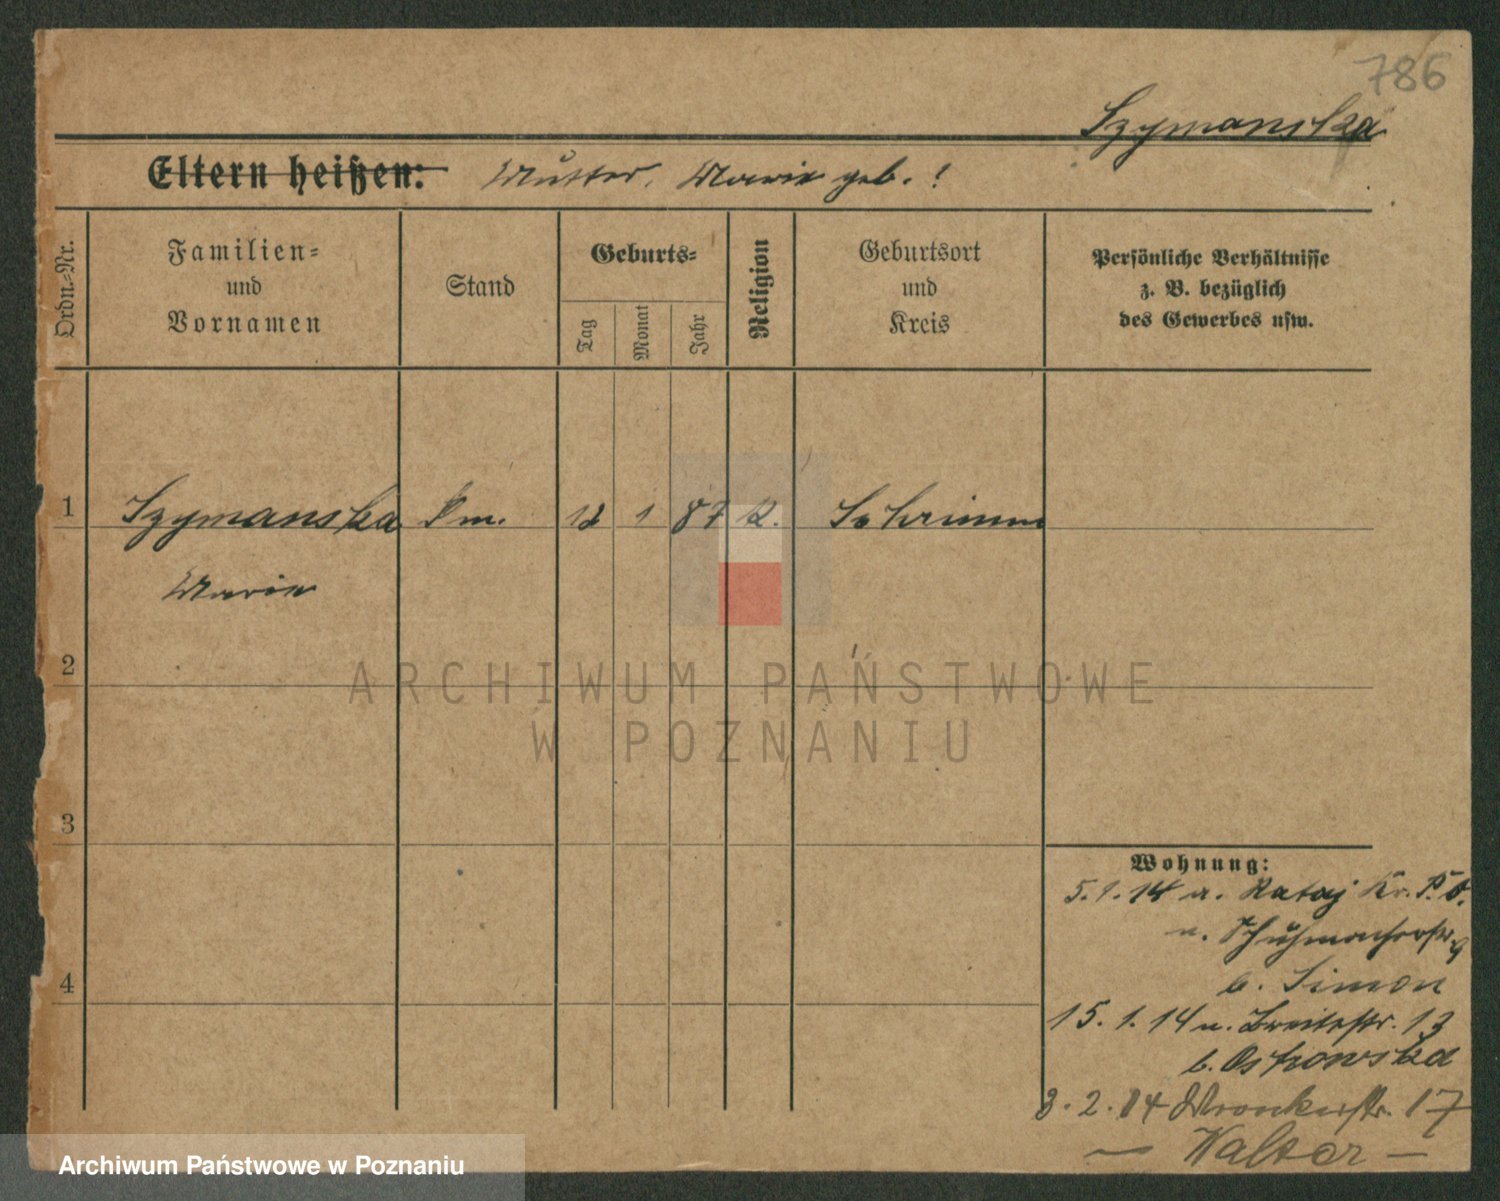 786
Szymanska
Eltern heißen: Mutter, Marie geb. ?
Ordn.-Nr.
Familien-
und
Vornamen
Stand
Geburts-
Tag
Monat
Jahr
Religion
Geburtsort
und
Kreis
Persönliche Verhältnisse
z. B. bezüglich
des Gewerbes usw.
1 Szymanska 1 87 K. Schrimm
Marie
2
ARCHIWUM PAŃSTWOWE
W POZNANIU
3
4
Wohnung:
5.1.14 a. Rataj Kr. P. O.
n. Schuhmacherstr. 9
b. Simon
15.1.14 n. Breitestr. 13
b. Ostrowska
3.2.14 Wronkerstr. 17
— Walter —
Archiwum Państwowe w Poznaniu